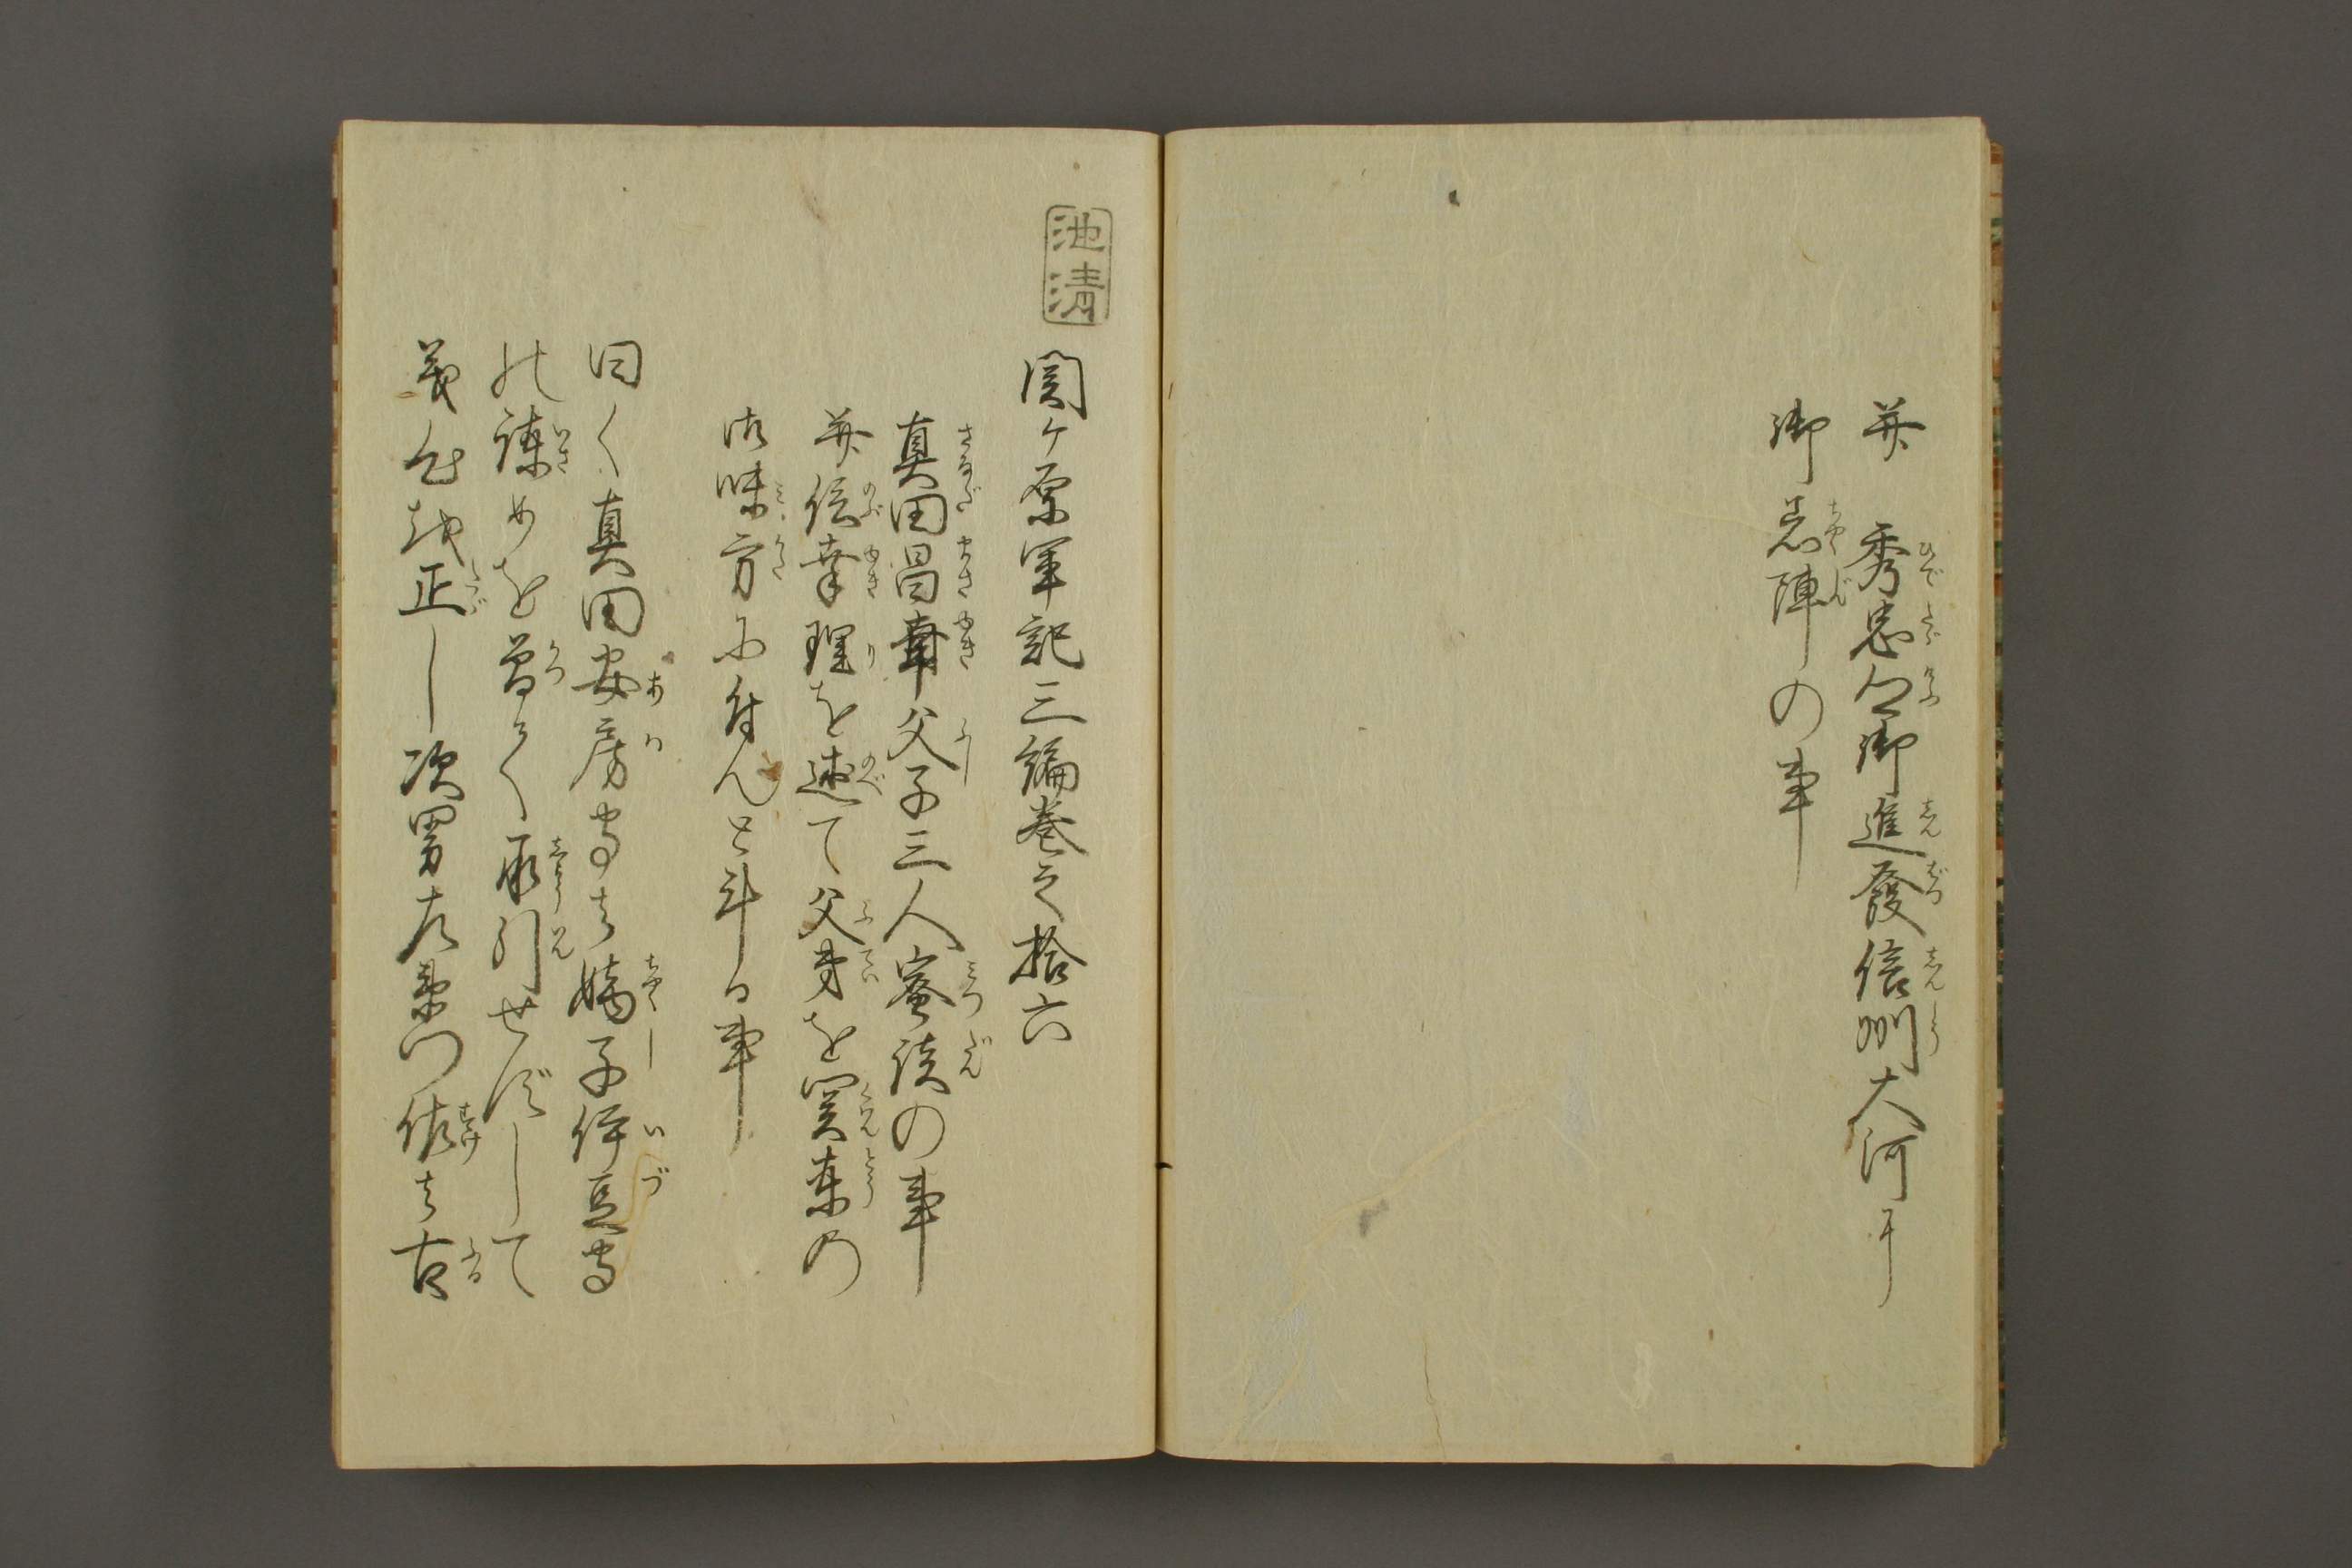 并秀忠公御進發信州大河ニ
御着陣の事
池清
関ヶ原軍記三編巻之拾六
真田昌幸父子三人蜜談の事
并信幸理を述て父弟を関東の
御味方に付んと計る事
曰く真田安房守は嫡子伊豆守
の諫めを曽て承引せずして
義心を正し次男左衛門佐は古